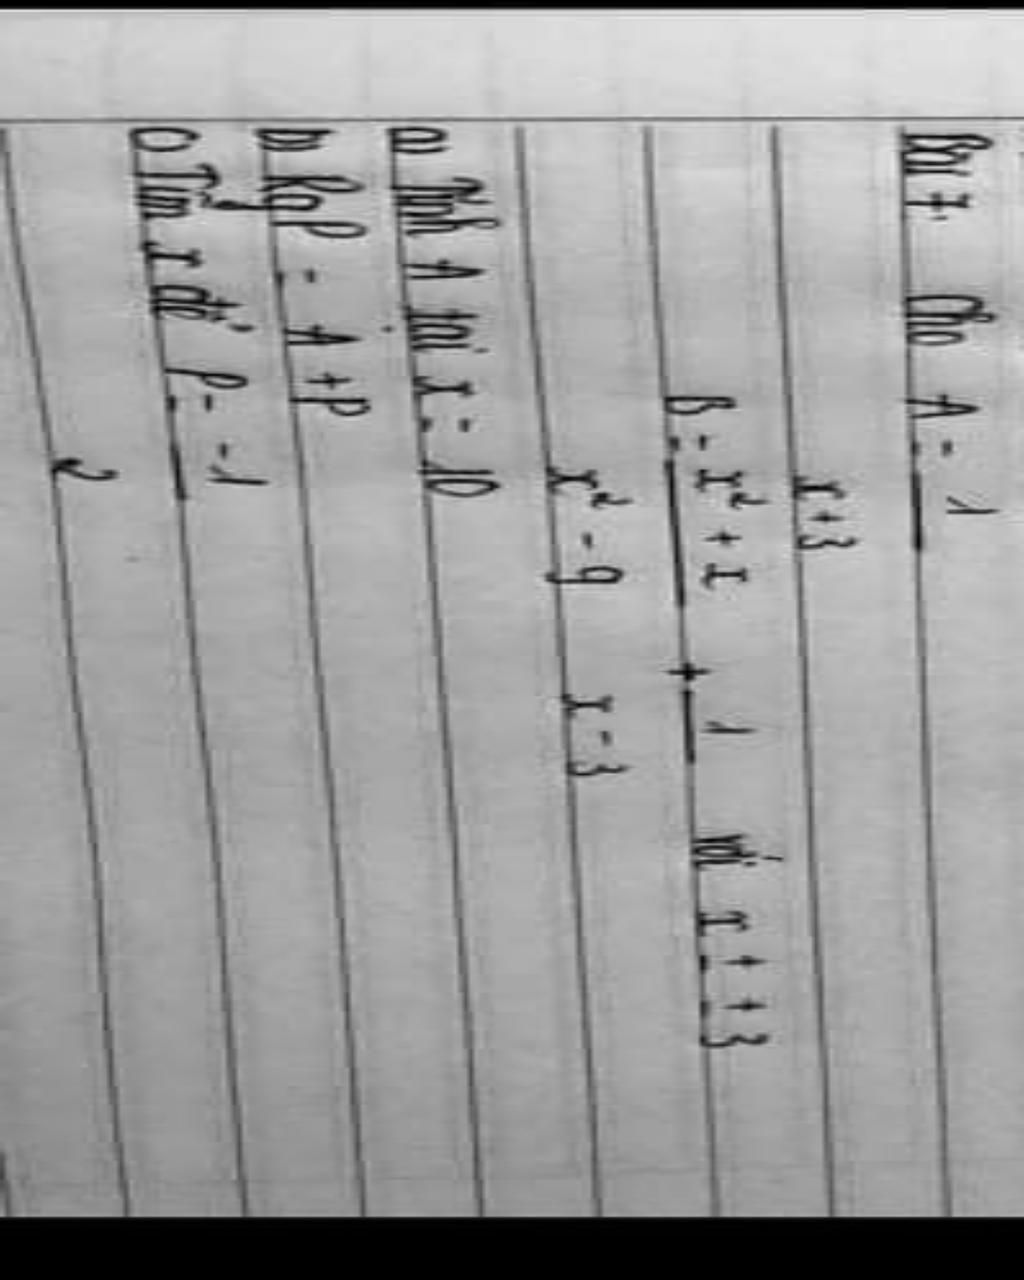 Bài 7. Cho A = 1
x+3
B = x² + x + 1 với x ≠ ± 3
x² - 9 x - 3
a) Tính A tại x = 10
b) R g P = A + B
c) Tìm x để P = -1
2